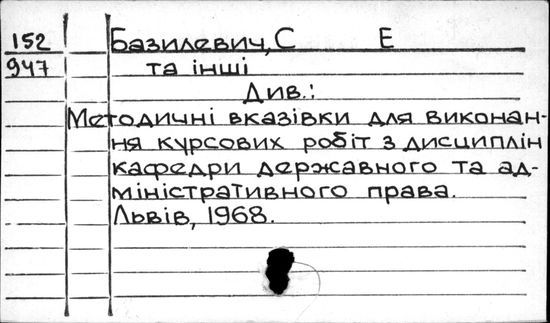 152 Базилевич, С Е
947 та інші
Див.:
Методичні вказівки для виконан-
ня курсових робіт з дисциплін
кафедри державного та ад-
міністративного права.
Львів, 1968.